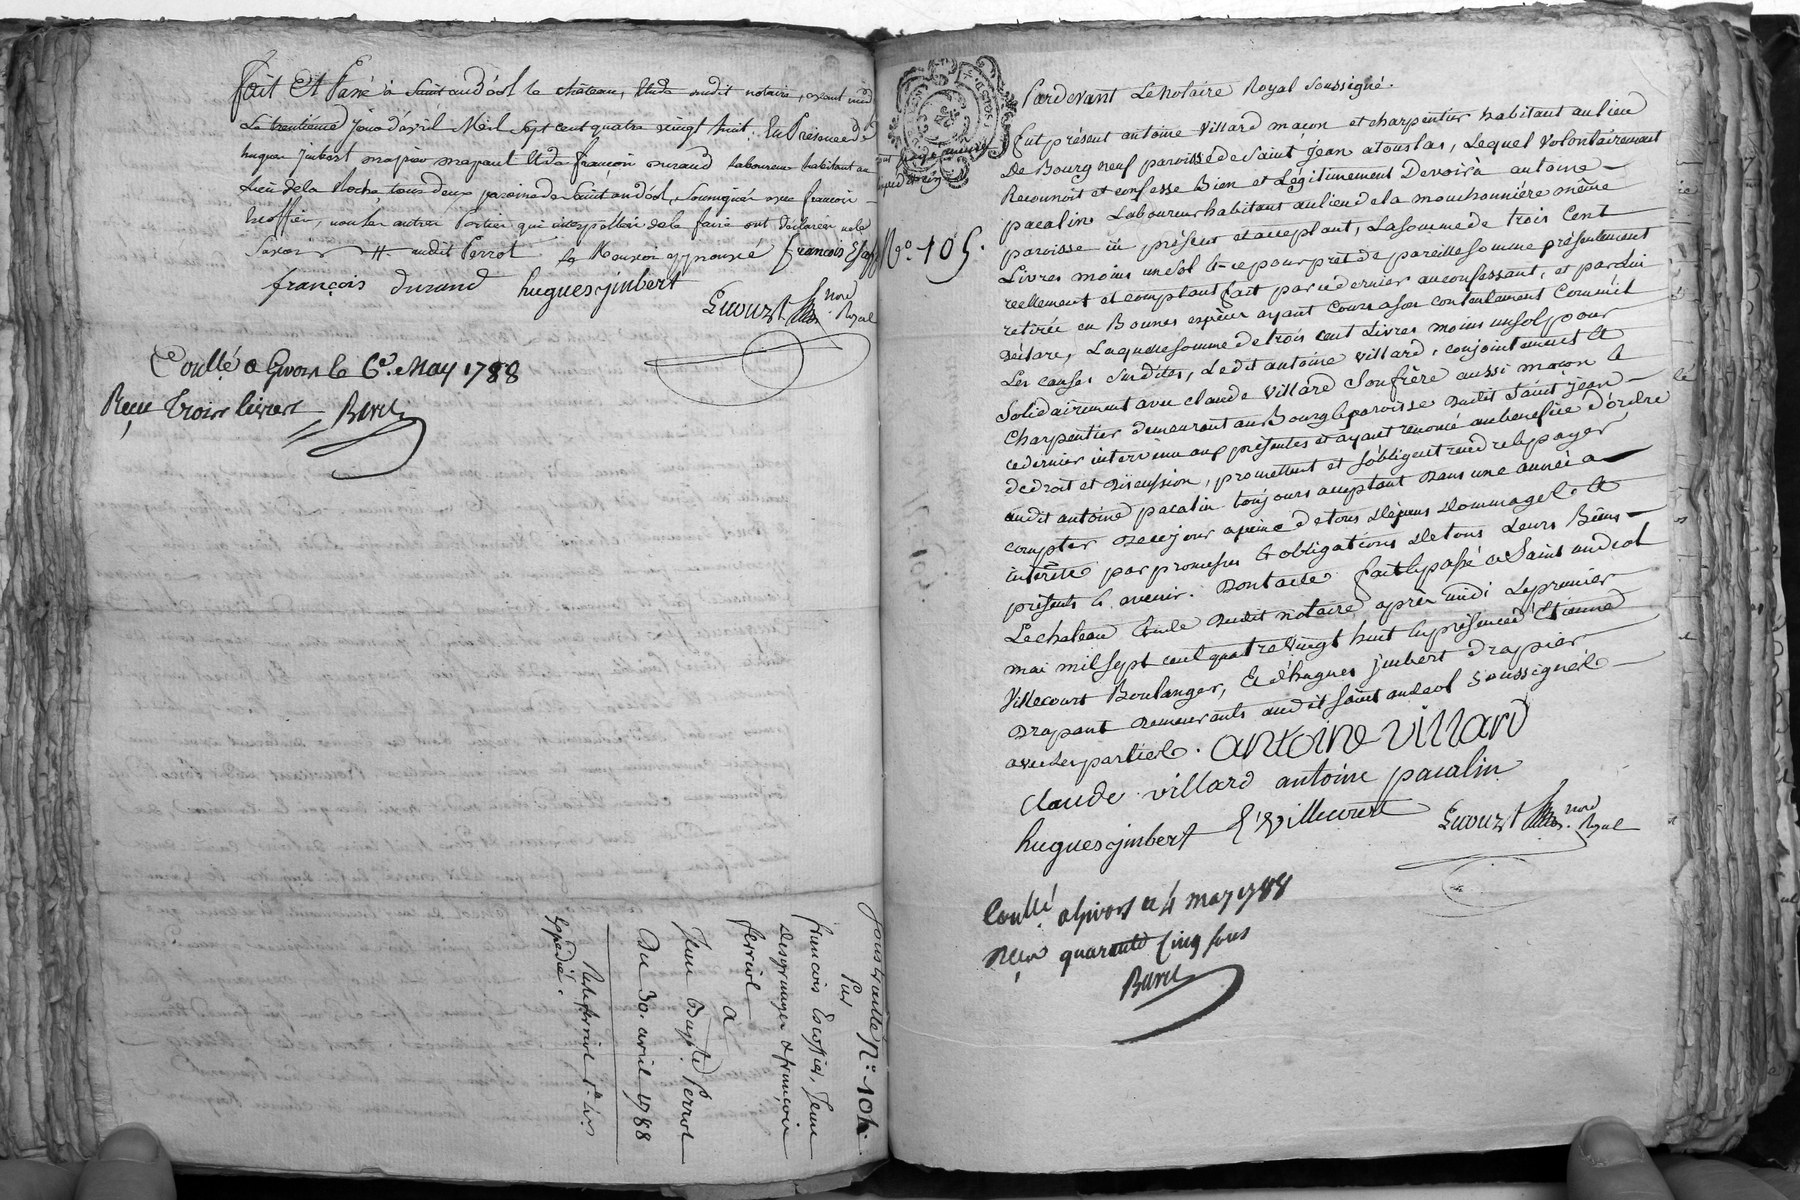 fait Et Passé à Saint andéol le château, Etude dudit notaire, avant midi
Le trentième jour d'avril Mil Sept cent quatre vingt huit. En Présence de
hugues jmbert drapier drapant Et de françois durand laboureur habitant au
Lieu de la Roche, tous deux paroisse de Saint andéol, Soussignés avec françois
Escoffier, non les autres Parties qui interpellées de le faire ont déclaré ne le
Savoir audit Perrot françois
françois durand hugues jmbert
Royal
Conllé a Givors le 6e. May 1788
Reçu Trois livres Buret
N.º 104.
Par
francois Escoffier, Jean
desgranges & françois
ferriol
a
Jean Bapte. Perrot
Du 30. avril 1788
Expédié.
Pardevant Le Notaire Royal Soussigné.
Fut présent antoine Villard maçon et charpentier habitant au lieu
De Bourg neuf paroisse de Saint Jean atouslas, Lequel Volontairement
Reconnoit et confesse Bien et Légitimement Devoir à antoine
pacalin Laboureur habitant au lieu de la mouchonnière même
paroisse ici présent et acceptant, La somme de trois Cent
N.º 105.
Livres moins un sol & ce pour prêt de pareille somme présentement
reellement et comptant fait par ce dernier au confessant, et par lui
retirée en Bonnes espèces ayant Cours a son contentement Comme il
déclare, Laquelle somme de trois cent Livres moins un sol, pour
Les causes Susdites, Ledit antoine Villard, conjointement &
Solidairement avec claude Villard Son frère aussi maçon &
Charpentier demeurant au Bourg & paroisse dudit Saint jean
ce dernier intervenu aux présentes et ayant renoncé au benefice d'ordre
de droit et Discussion, promettent et s'obligent rendre & payer
audit antoine pacalin toujours acceptant Dans une année a
compter De ce jour a peine de tous Dépens Dommages &
intérêts par promesses & obligations De tous Leurs Biens
présents & avenir. Dont acte fait & passé a Saint andeol
Le chateau Etude Dudit notaire après midi Le premier
mai mil sept cent quatre vingt huit En présence d'Etienne
Villecourt Boulanger, Et d'hugues jmbert drapier
Drapant Demeurants audit saint andeol Soussignés
avec les parties. antoine villard
claude villard antoine pacalin
hugues jmbert E. Villecourt
Royal
Conllé a Givors le 4 may 1788
Reçu quarante Cinq sous
Buret